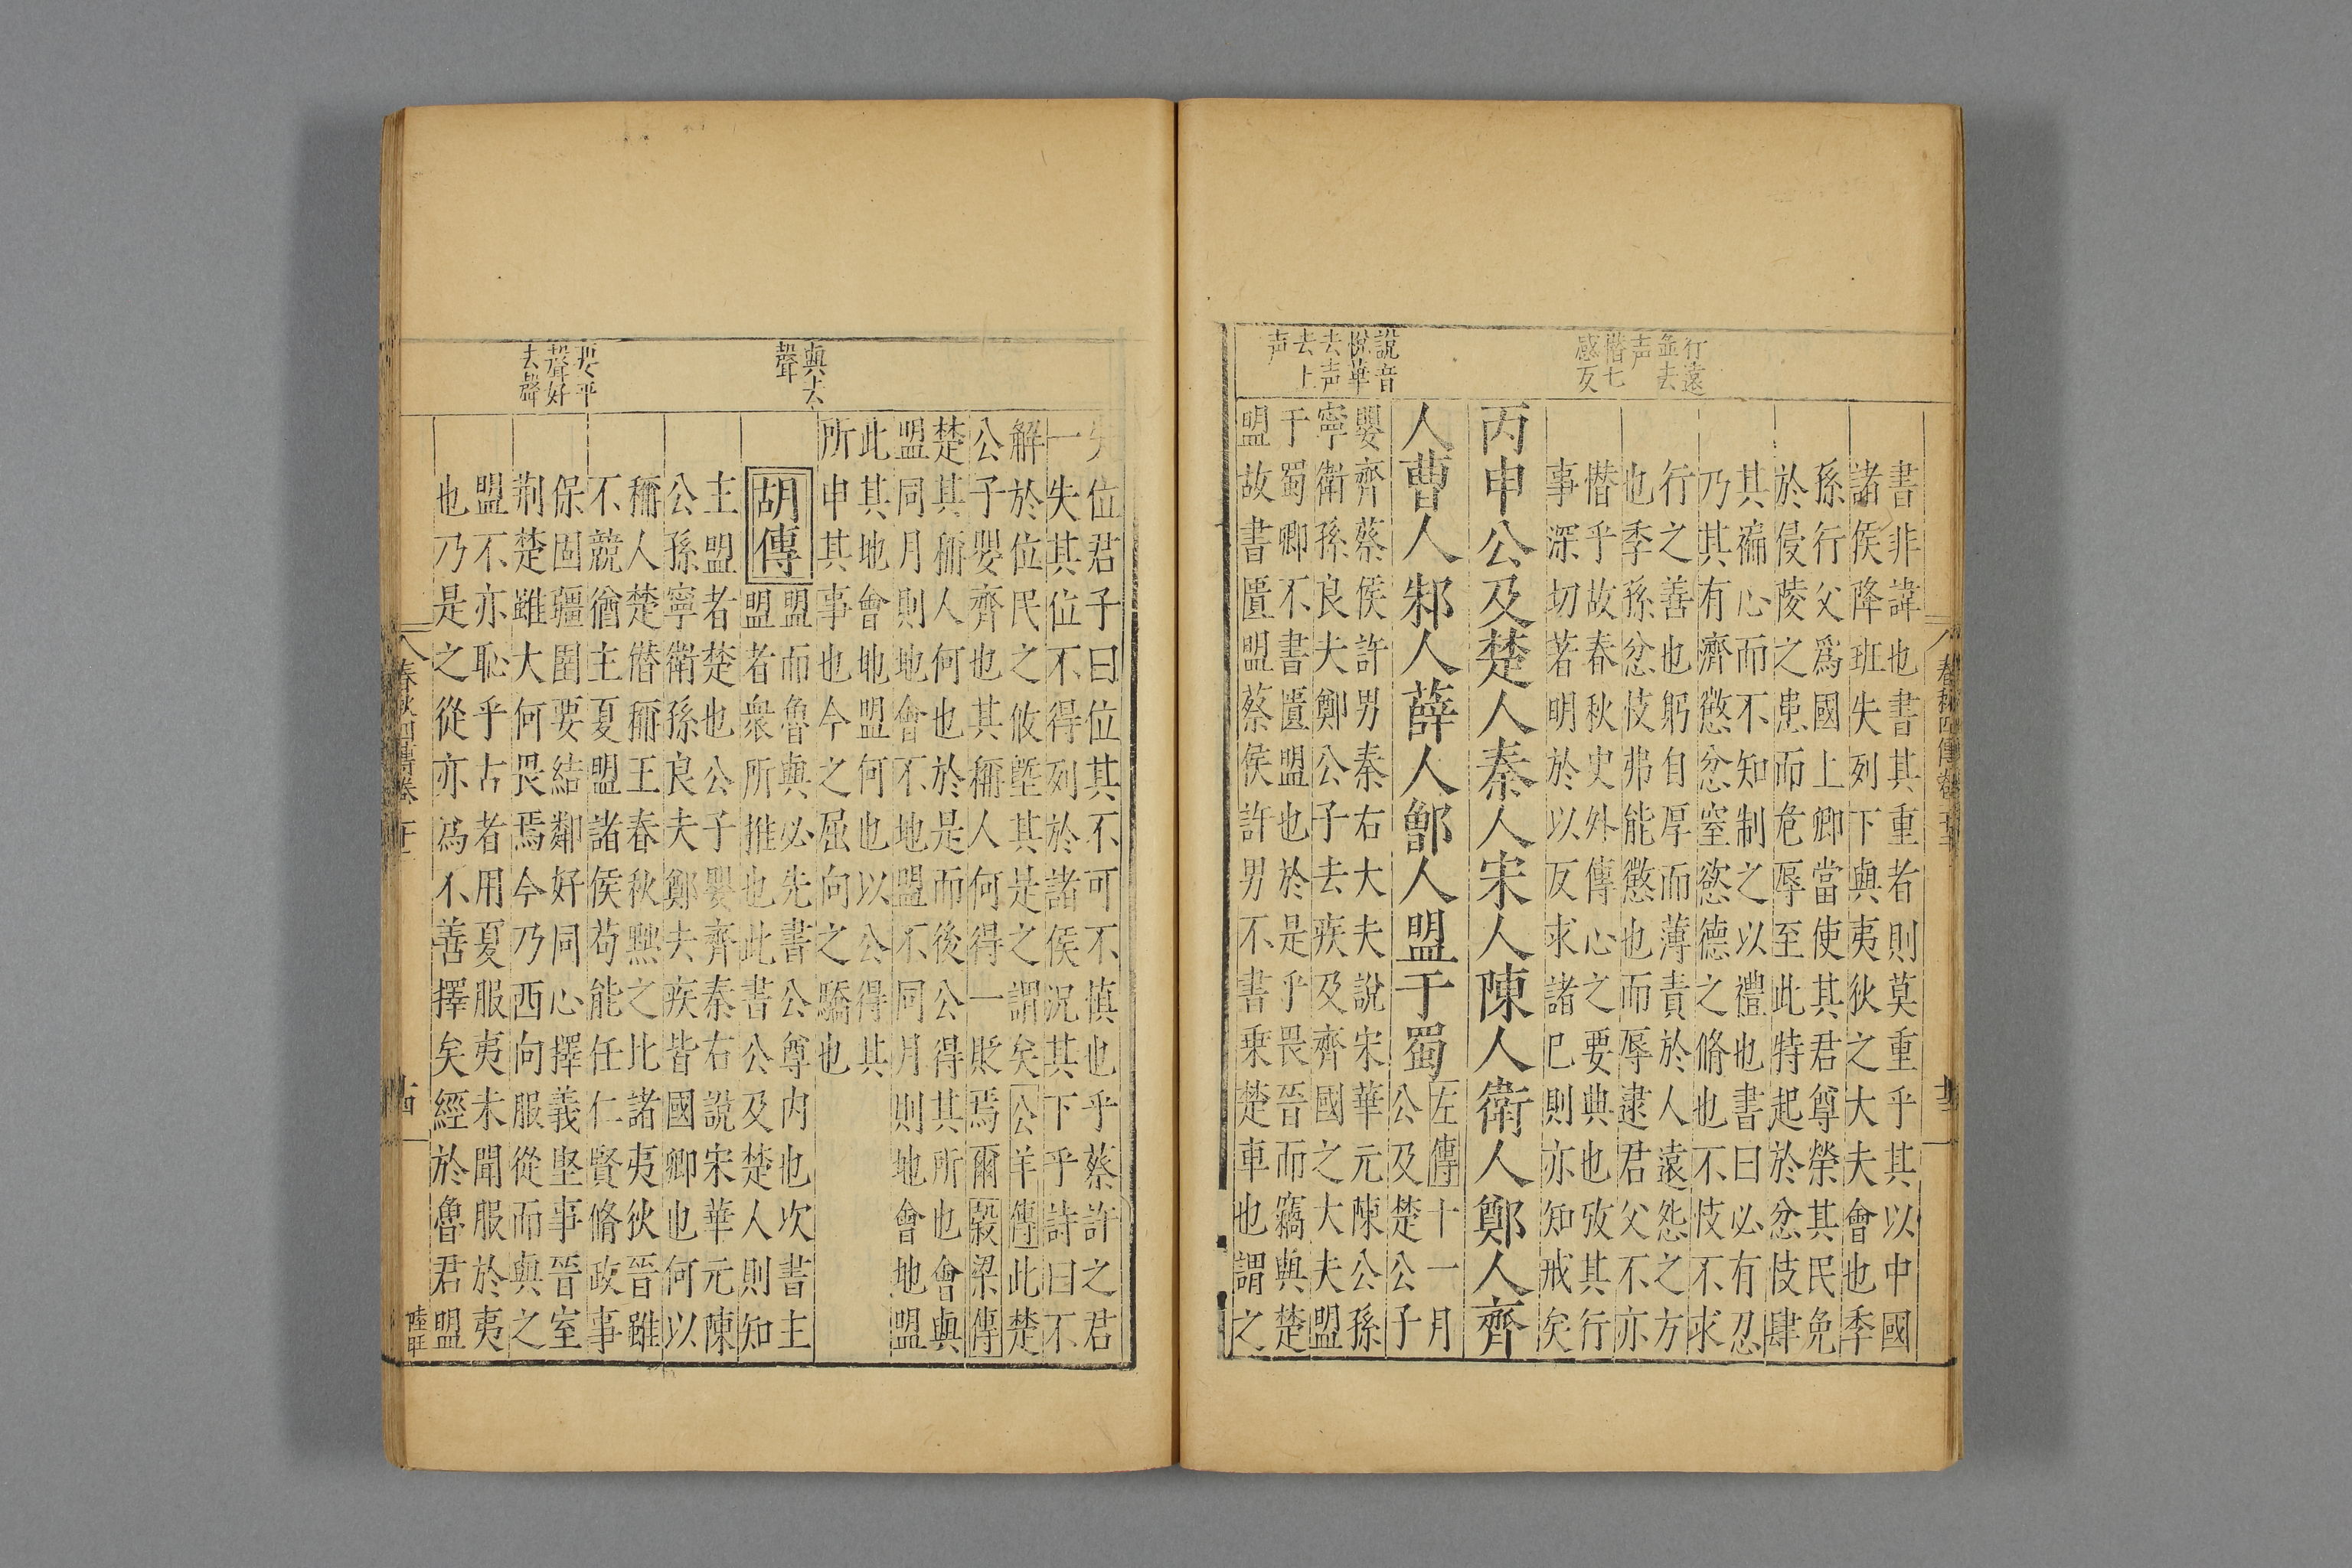 行遠
並去
声
憯七
感反
說音
悅華
去声
去上
声
春秋四傳卷
書非諱也書其重者則莫重乎其以中國
諸侯降班失列下與夷狄之大夫會也季
孫行父爲國上卿當使其君尊榮其民免
於侵陵之患而危辱至此特起於忿忮肆
其褊心而不知制之以禮也書曰必有忍
乃其有濟懲忿窒慾德之脩也不忮不求
行之善也躬自厚而薄責於人遠怨之方
也季孫忿忮弗能懲也而辱逮君父不亦
憯乎故春秋史外傳心之要典也攷其行
事深切若明於以反求諸已則亦知戒矣
丙申公及楚人秦人宋人陳人衛人鄭人齊
人曹人邾人薛人鄫人盟于蜀左傳十一月
公及楚公子
嬰齊蔡侯許男秦右大夫說宋華元陳公孫
寧衛孫良夫鄭公子去疾及齊國之大夫盟
于蜀卿不書匱盟也於是乎畏晉而竊與楚
盟故書匱盟蔡侯許男不書乗楚車也謂之
與去
聲
要平
聲好
去聲
失位君子曰位其不可不慎也乎蔡許之君
一失其位不得列於諸侯況其下乎詩曰不
解於位民之攸塈其是之謂矣公羊傳此楚
公子嬰齊也其稱人何得一貶焉爾穀梁傳
楚其稱人何也於是而後公得其所也會與
盟同月則地會不地盟不同月則地會地盟
此其地會地盟何也以公得其
所申其事也今之屈向之驕也
胡傳
盟而魯與必先書公尊內也次書主
盟者衆所推也此書公及楚人則知
主盟者楚也公子嬰齊秦右說宋華元陳
公孫寧衛孫良夫鄭去疾皆國卿也何以
稱人楚僭稱王春秋黜之比諸夷狄晉雖
不競猶主夏盟諸侯苟能任仁賢脩政事
保固疆圉要結鄰好同心擇義堅事晉室
荊楚雖大何畏焉今乃西向服從而與之
盟不亦恥乎古者用夏服夷未聞服於夷
也乃是之從亦爲不善擇矣經於魯君盟
春秋四傳卷
十四